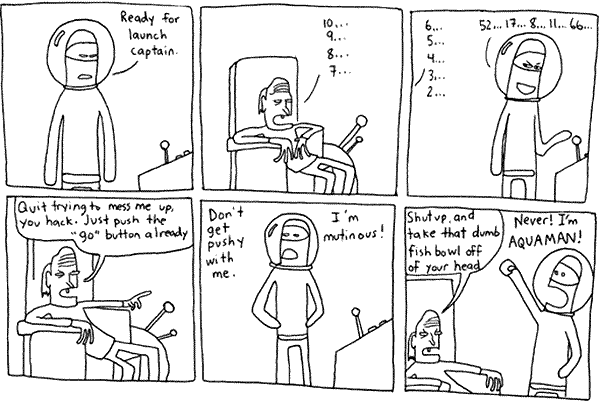 Ready for
launch
captain.
10...
9...
8...
7...
6...
5...
4...
3...
2...
52... 17... 8... 11... 66...
Quit trying to mess me up,
you hack. Just push the
"go" button already
Don't
get
pushy
with
me.
I'm
mutinous!
Shut up, and
take that dumb
fish bowl off
of your head
Never! I'm
AQUAMAN!